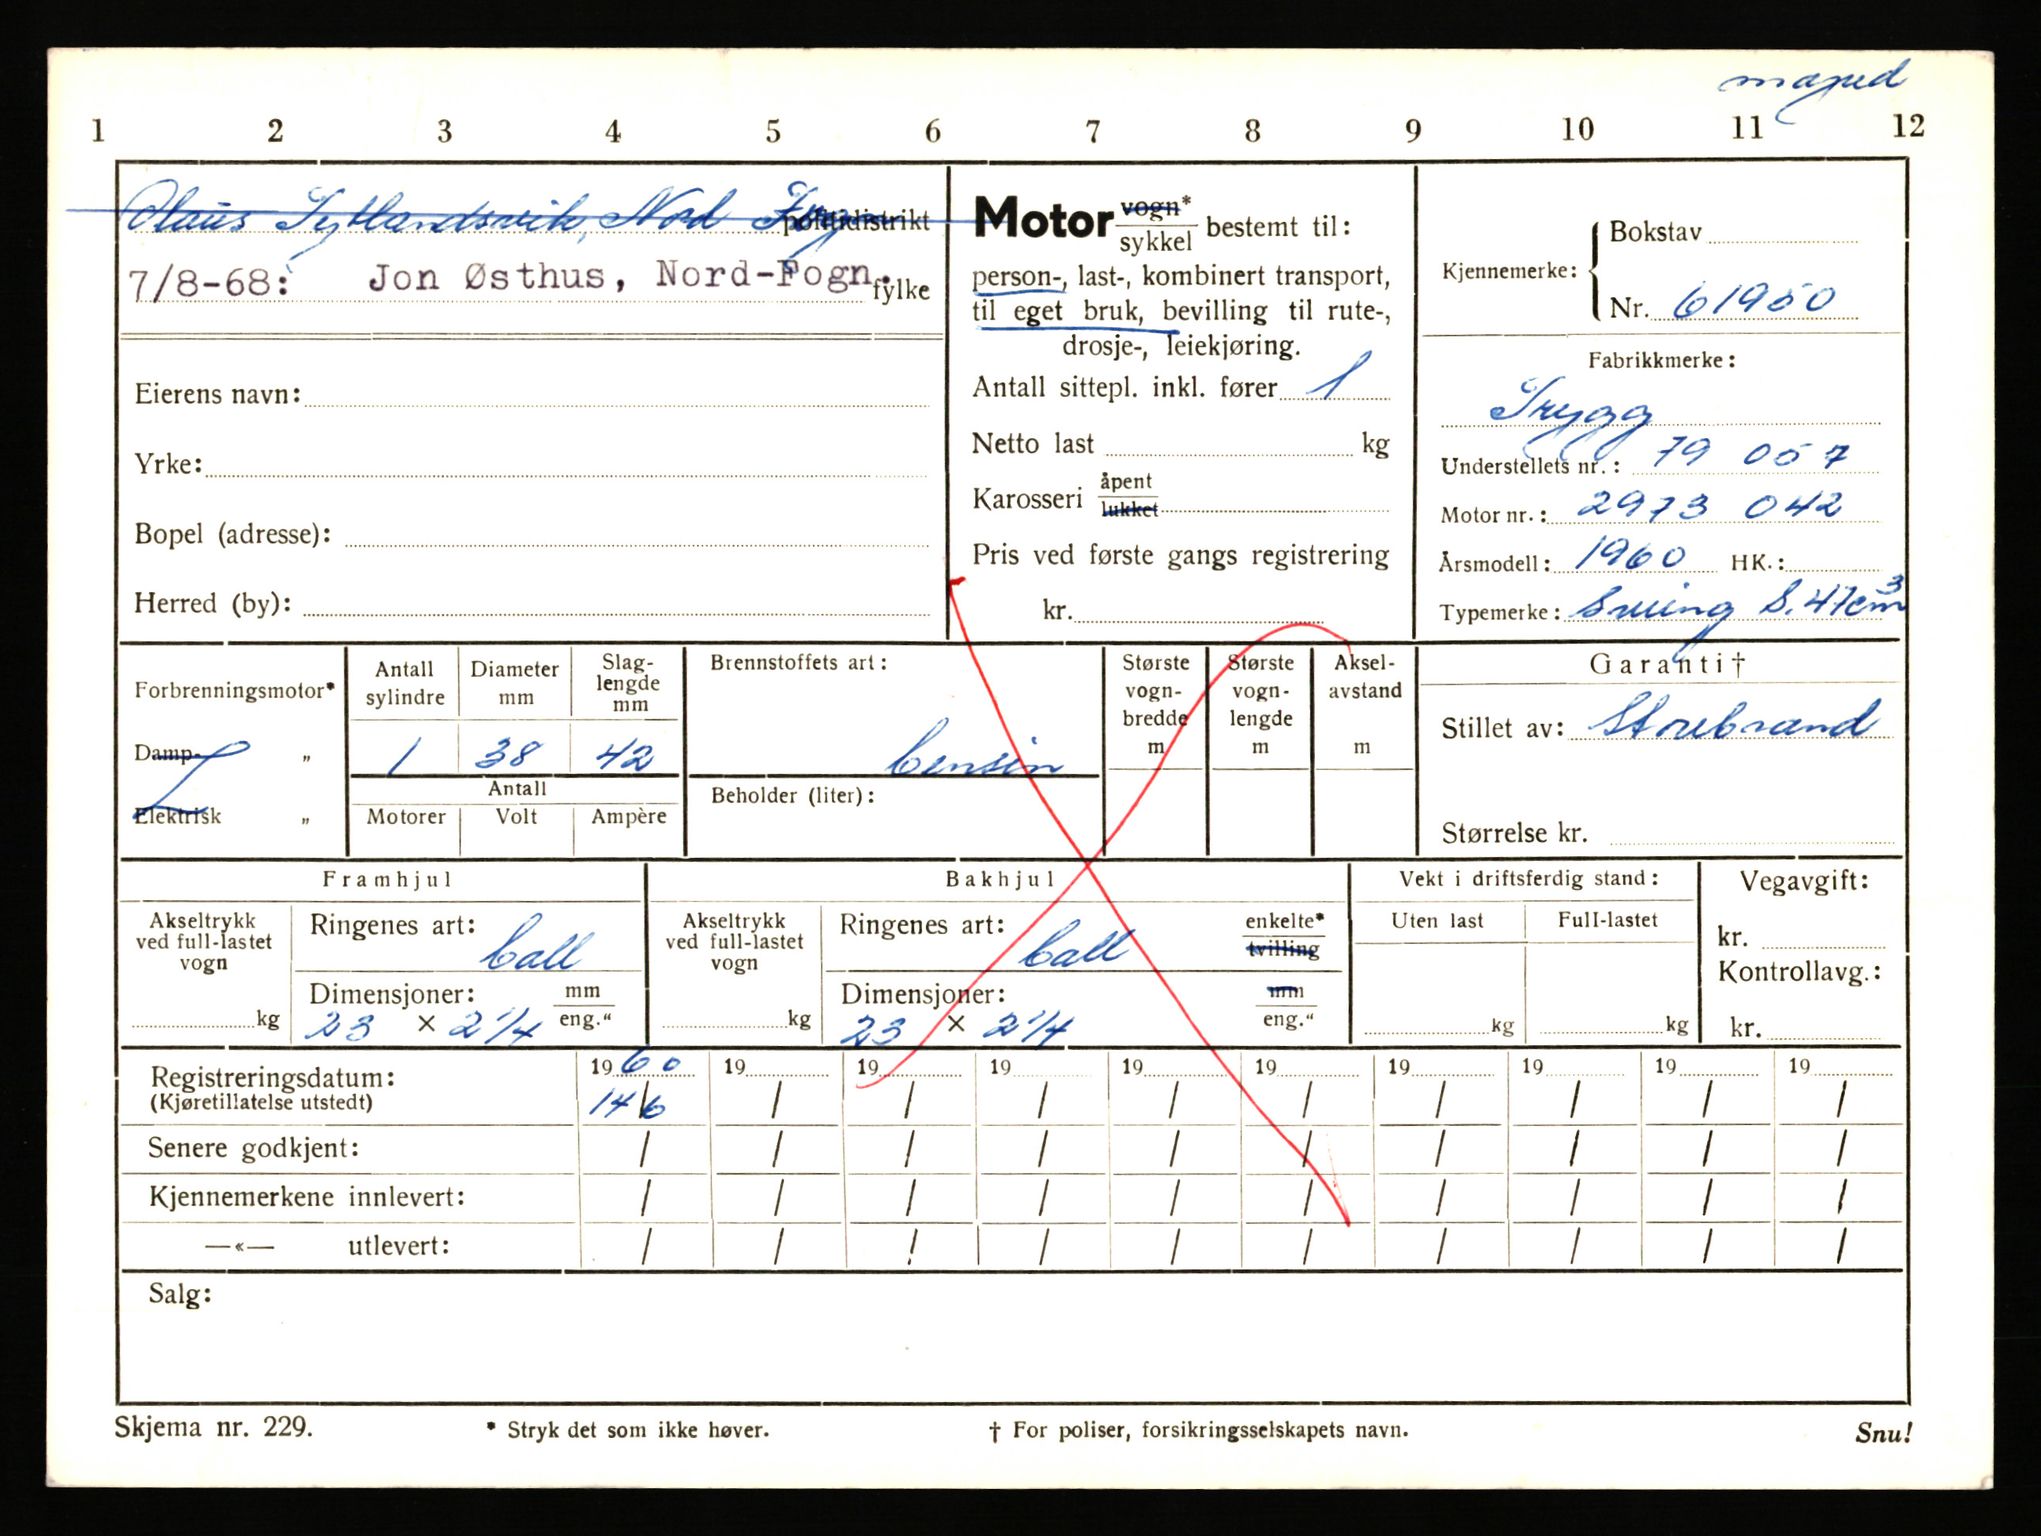 moped
1 2 3 4 5 6 7 8 9 10 11 12
Olaus Nord politidistrikt
7/8-68: Jon Østhus, Nord-Fogn. fylke
Eierens navn:
Yrke:
Bopel (adresse):
Herred (by):
Motor vogn* sykkel bestemt til:
person-, last-, kombinert transport,
til eget bruk, bevilling til rute-,
drosje-, leiekjøring.
Antall sittepl. inkl. fører 1
Netto last kg
Karosseri åpent lukket
Pris ved første gangs registrering
kr.
Kjennemerke:
Bokstav
Nr. 61950
Fabrikkmerke:
Trygg
Understellets nr.: 79 057
Motor nr.: 2973 042
Årsmodell: 1960 HK.:
Typemerke: Swing S. 47cm³
Forbrenningsmotor*
Damp- „
Elektrisk „
Antall sylindre
Diameter mm
Slag-lengde mm
1 38 42
Antall
Motorer Volt Ampère
Brennstoffets art:
bensin
Beholder (liter):
Største vogn-bredde m
Største vogn-lengde m
Aksel-avstand m
Garanti†
Stillet av: Storebrand
Størrelse kr.
Framhjul
Akseltrykk ved full-lastet vogn
kg
Ringenes art:
ball
Dimensjoner: mm
23 × 2 1/4 eng."
Bakhjul
Akseltrykk ved full-lastet vogn
kg
Ringenes art: enkelte*
ball tvilling
Dimensjoner: mm
23 × 2 1/4 eng."
Vekt i driftsferdig stand:
Uten last Full-lastet
kg kg
Vegavgift:
kr.
Kontrollavg.:
kr.
Registreringsdatum: 1960 19 19 19 19 19 19 19 19 19
(Kjøretillatelse utstedt) 14/6 / / / / / / / / /
Senere godkjent: / / / / / / / / / /
Kjennemerkene innlevert: / / / / / / / / / /
—«— utlevert: / / / / / / / / / /
Salg:
Skjema nr. 229. * Stryk det som ikke høver. † For poliser, forsikringsselskapets navn. Snu!